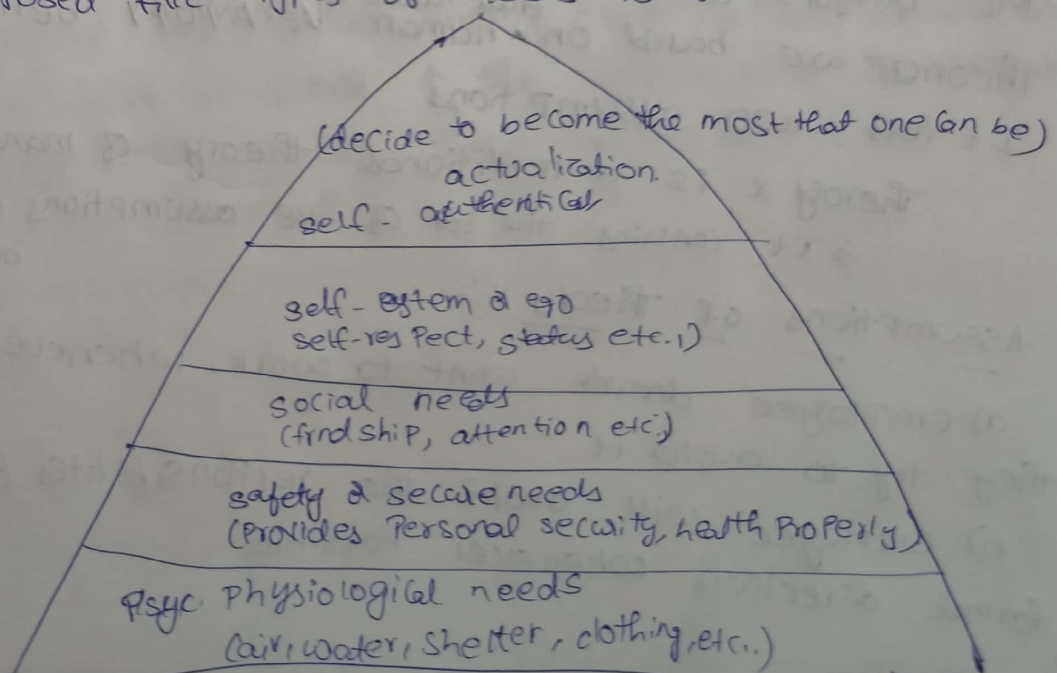 (decide to become the most that one can be)
actualization.
self- authentical
self-eystem & ego
self-res Pect, status etc.,)
social needs
(frnd ship, attention etc.,)
safety & secure needs
(Provides Personal security, health Properly)
Psyc. physiological needs
(air, water, shelter, clothing, etc..)